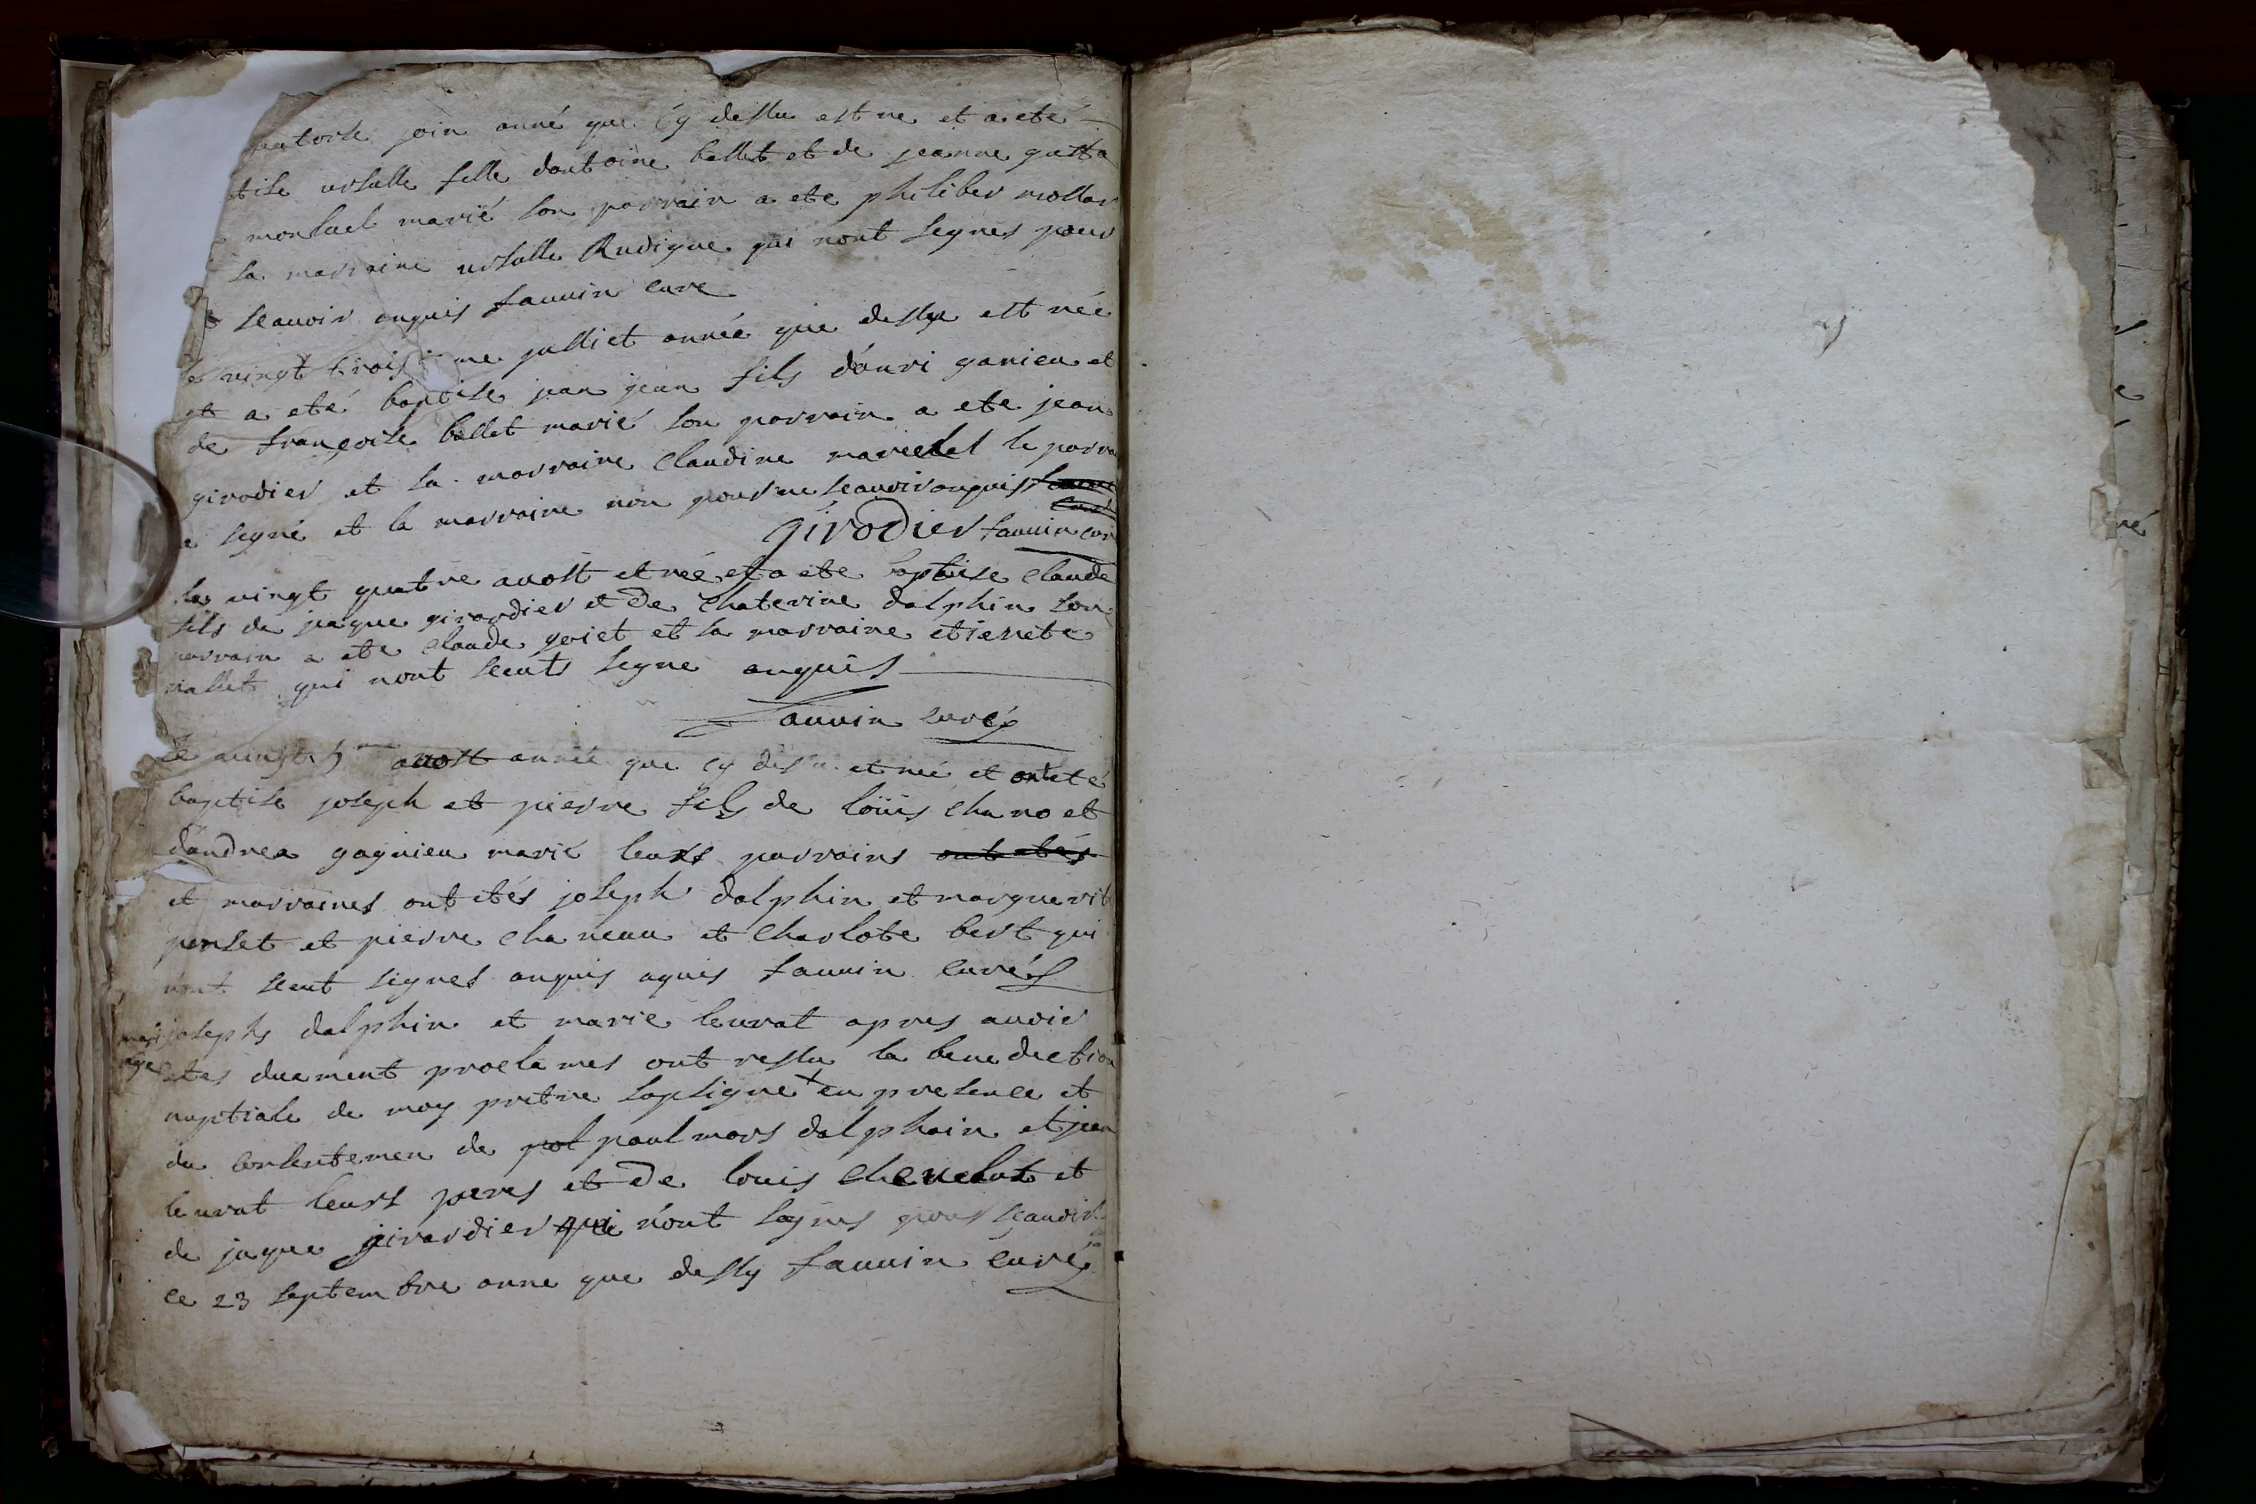 quatorse join anné que cy dessu est ne et a eté
tise ursulle fille dantoine ballet et de jeanne gutta
monsuel marié son parrain a ete philiber mollar
la marraine ursulle Rudigue qui nont segnes pour
scauoir enquis fauuin cure
le vingt troisieme jullict année que dessu est née
et a eté baptise jean jean fils d'anri ganieu et
de françoise ballet marié son parrain a ete jean
girodier et la marraine claudine mariclet le parra
a segné et la marraine non pour ne scauoir enquis
girodier fauuin cur
le vingt quatre auost et née et a ete baptise claude
fils de jaque girardier et de chaterine dalphin son
parrain a ete claude goiet et la marraine etienete
mallet qui nont sceuts segne enquis
fauuin curé
Le auost année que cy dessu et née et ont eté
baptise joseph et pierre fils de loüis chano et
dandrea gagnieu marié leurs parrains ont etés
et marraines ont etés joseph dalphin et marguerit
penset et pierre chaneuu et charlote bert qui
nont sceut signes enquis fauuin curé
mari age
josephs dalphin et marie leurat apres auoir
etes duement proclames ont ressu la benediction
nuptiale de moy pretre sousigne + en presence et
du consentemen de pol paul mors dalphain et jean
leurat leurs peres et de louis et
de jaque girardier qui n'ont segnes pour scauoir
ce 23 septembre anne que dessy fauuin curé